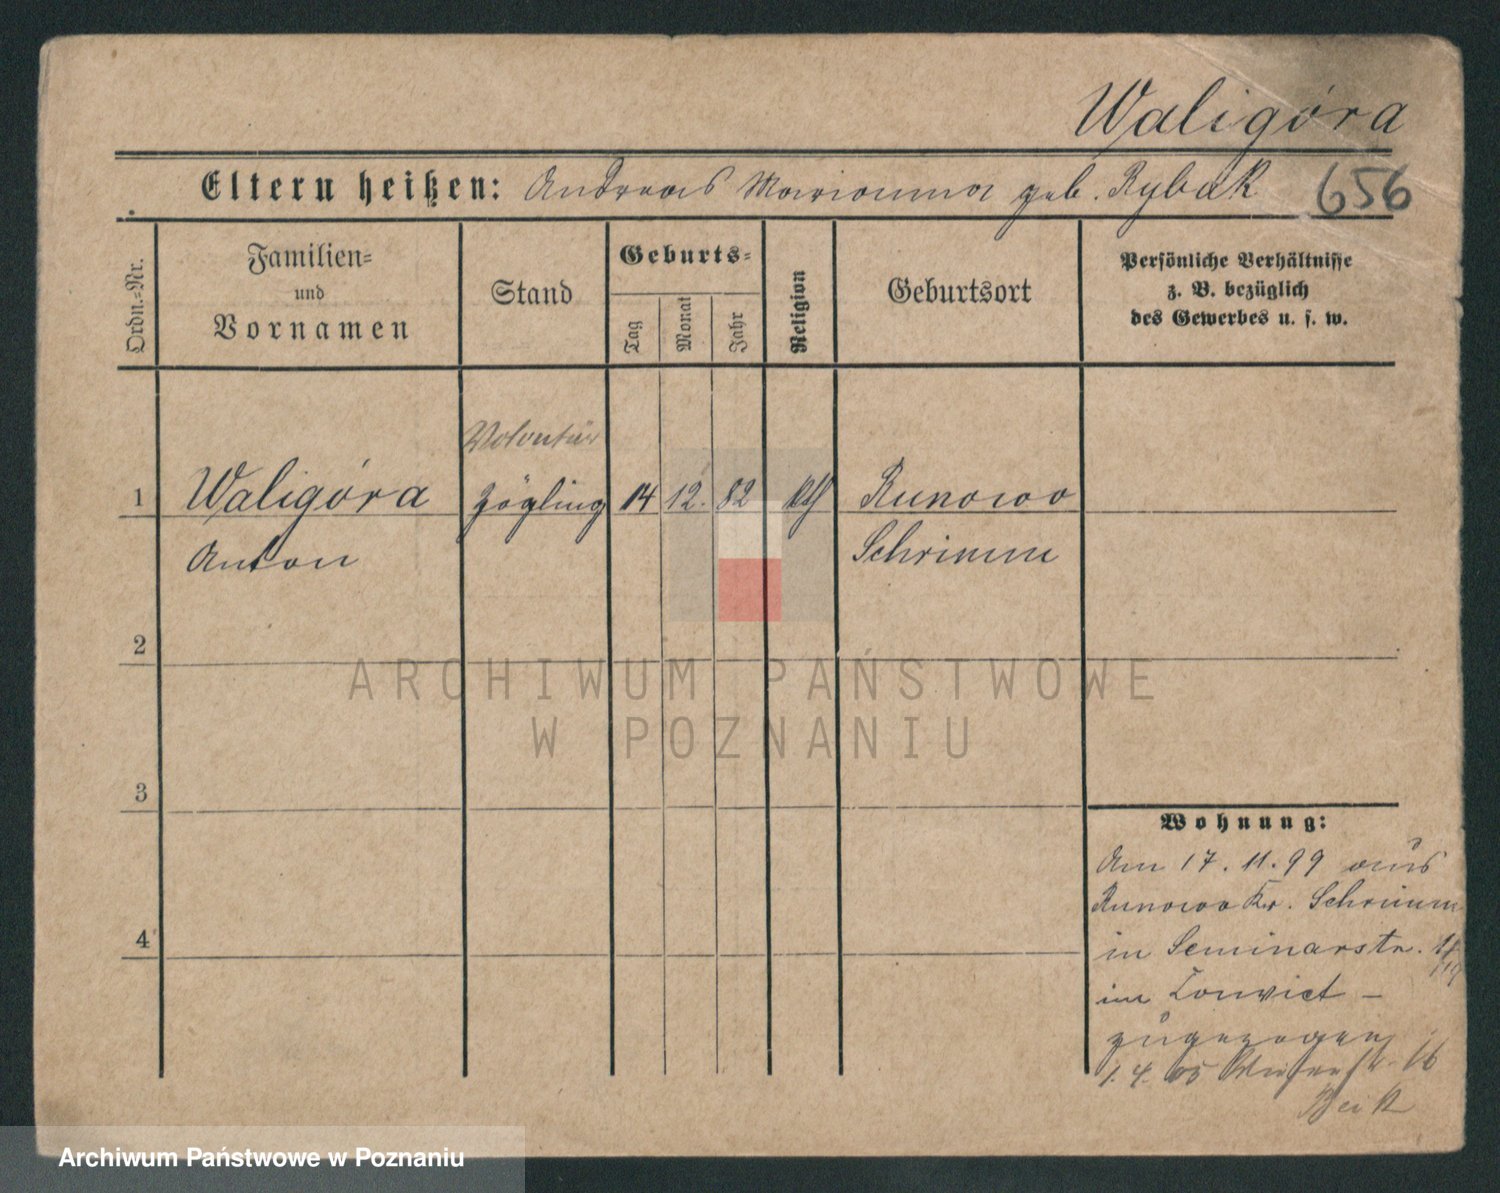 Waligóra
Eltern heißen: Andreas Marianna geb. Rybak
656
Ordn.-Nr.
Familien-
und
Vornamen
Stand
Geburts-
Tag
Monat
Jahr
Religion
Geburtsort
Persönliche Verhältnisse
z. B. bezüglich
des Gewerbes u. s. w.
Volontär
1 Waligóra Zögling 14 12. 82 kth Runowo
Anton Schrimm
2
3
4
ARCHIWUM PAŃSTWOWE
W POZNANIU
Wohnung:
Am 17. 11. 99 aus
Runowo Kr. Schrimm
in Seminarstr.
im Convict –
zugezogen
1. 4. 05 16
Archiwum Państwowe w Poznaniu